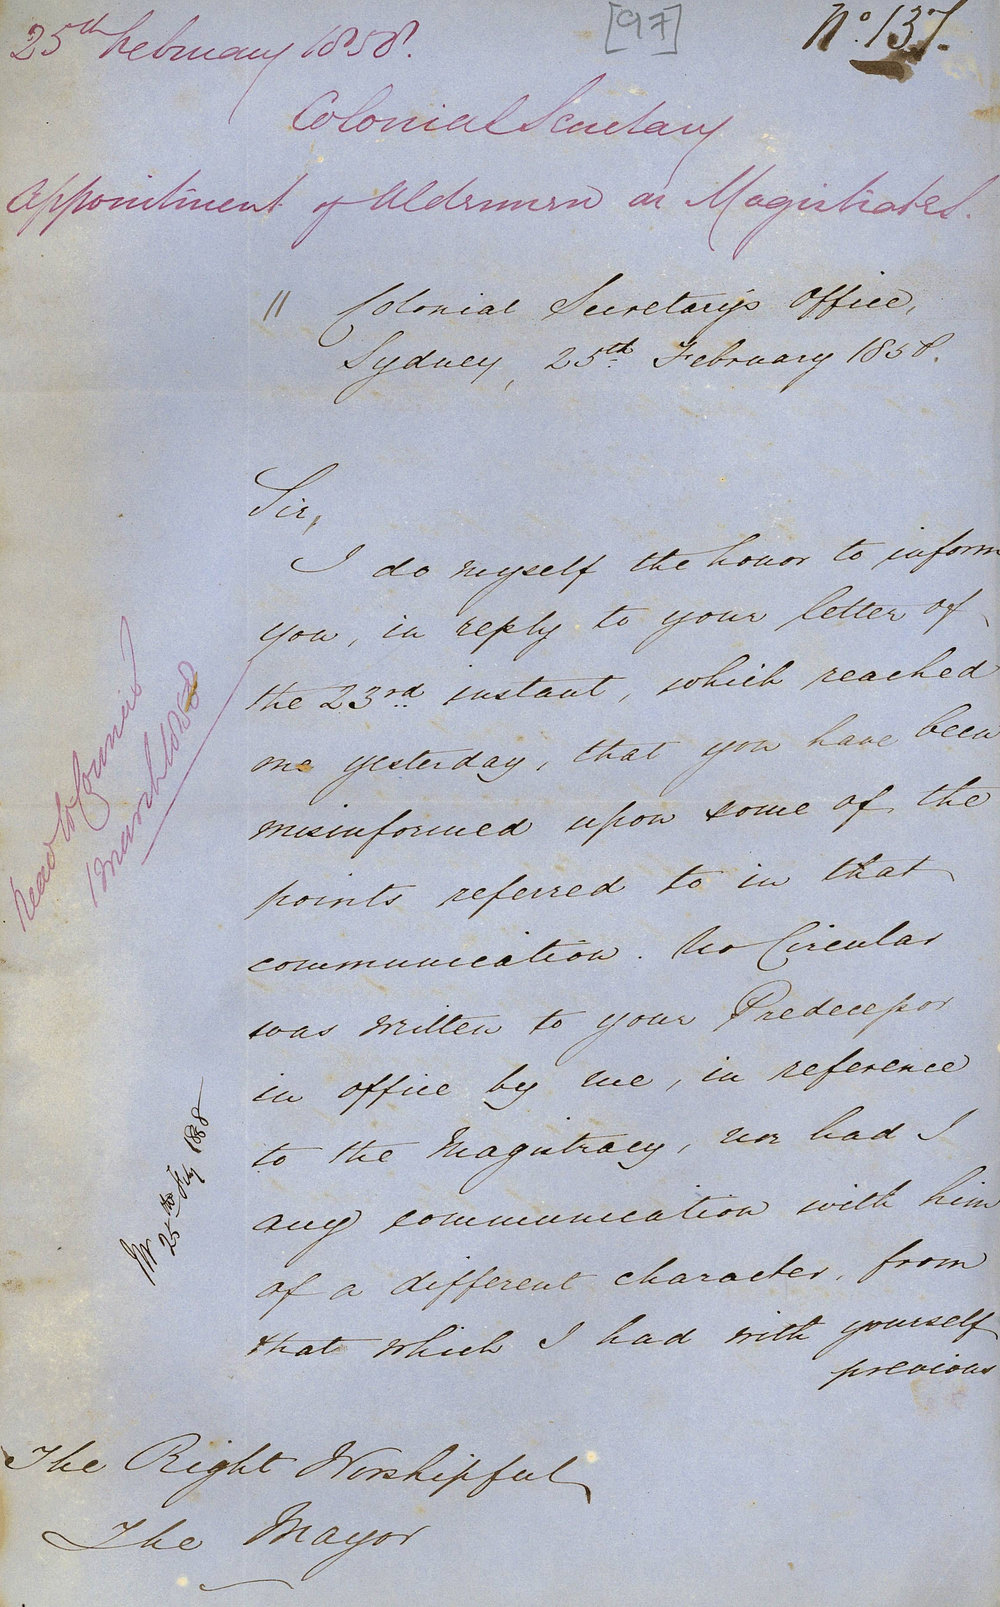 25th February 1858.
[97]
No. 137.
Colonial Secretary
Appointment of Aldermen as Magistrates.
" Colonial Secretary's Office,
Sydney, 25th February 1858.
Sir,
I do myself the honor to inform
you, in reply to your letter of
the 23rd instant, which reached
me yesterday, that you have been
misinformed upon some of the
points referred to in that
communication. No Circular
was written to your Predecessor
in office by me, in reference
to the Magistracy, nor had I
any communication with him
of a different character, from
that which I had with yourself
previous
Read to Council
1 March 1858
25th Feby 1858
The Right Worshipful
The Mayor